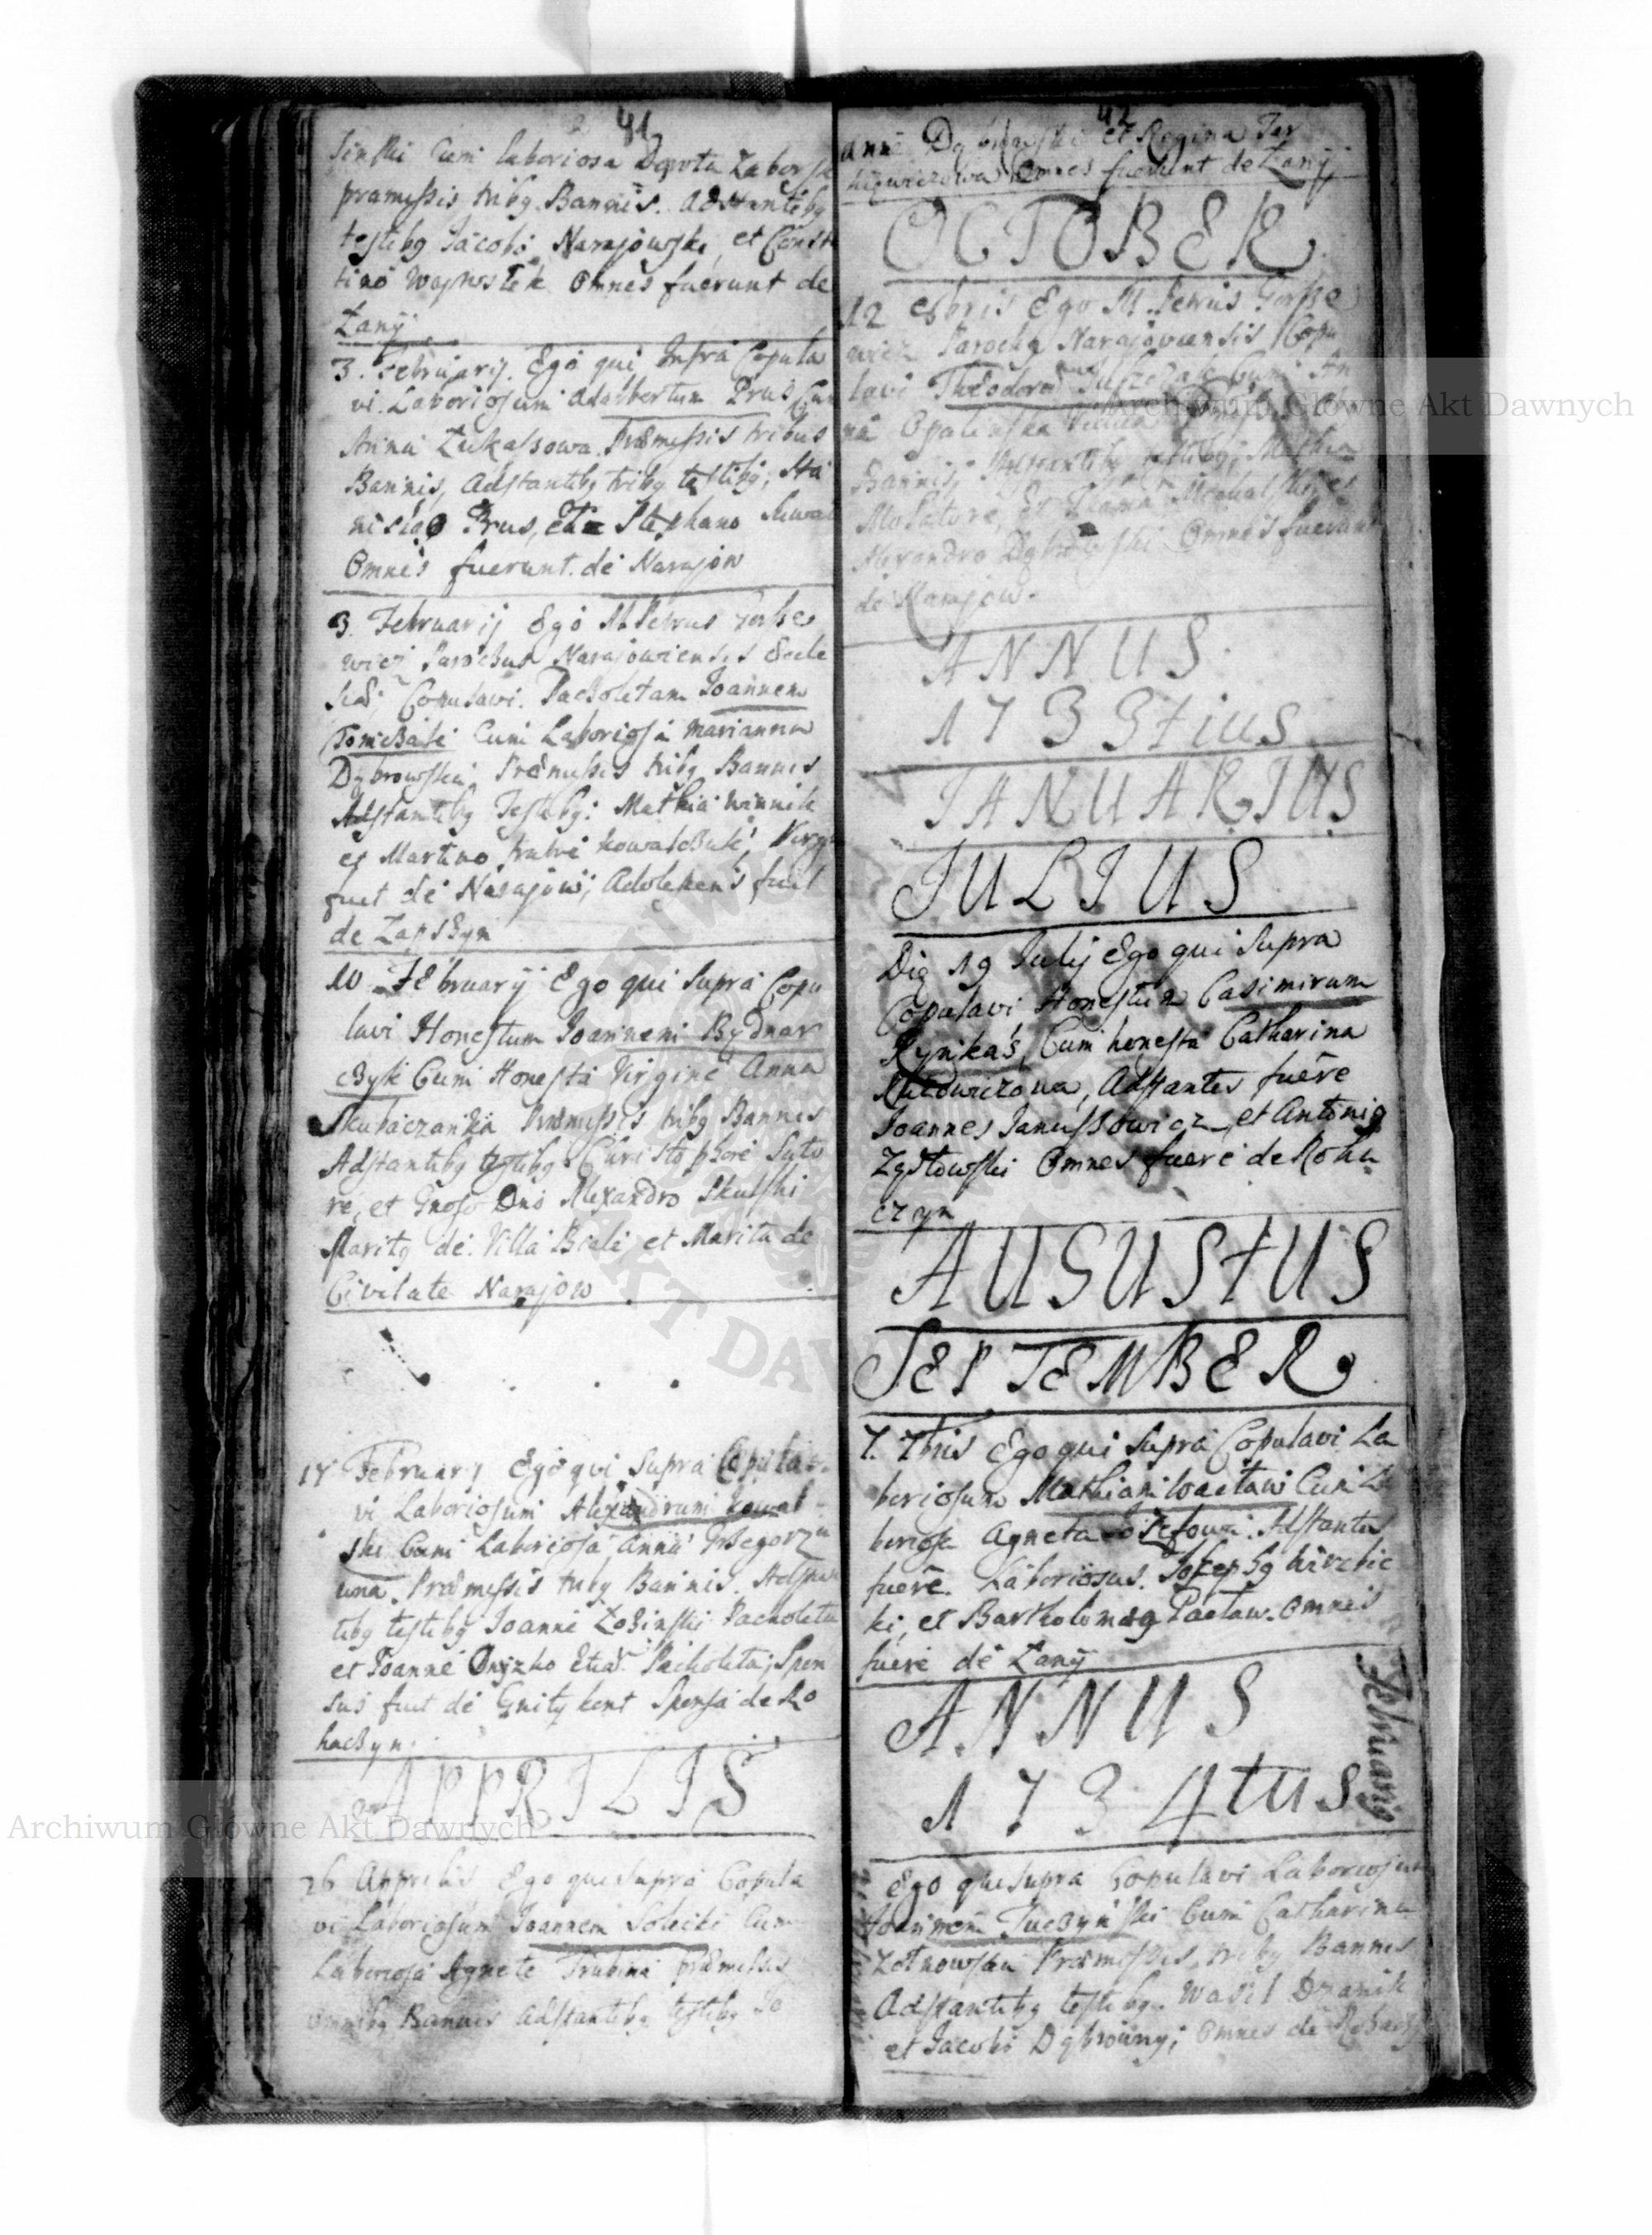 41
sinski Cum laboriosa Dorota Zabors
præmissis tribq Bannis. Adstantibq
testibq Jacobi Narajowski, et Const
tino Woynostek Omnes fuerunt de
Łany
3. Februarij. Ego qui Infra Copula
vi Laboriosum Adalbertum Prus Cum
Anna Łukasowa. Præmissis tribus
Bannis, Adstantibq tribq testibq; Sta
nislao Prus, et Stephano
Omnes fuerunt de Narajow
3. Februarij Ego M. Petrus
wicz Parochus Narajowiensis Eccle
siæ; Copulavi. Pacholetam Joannem
Tomczak Cum Laboriosa Marianna
Dąbrowska, Præmissis tribq Bannis
Adstantibq Testibq: Mathia Winnik
et Martino fratre Kowalczuk; Virgo
fuit de Narajow; Adolescens fuit
de Łapszyn
10 February Ego qui Supra Copu
lavi Honestum Joannem Bydnar
czyk Cum Honesta Virgine Anna
Skubaczanka Præmissis tribq Bannis
Adstantibq testibq Christophore Suto
re, et Gnoso Dno Alexandro Skulski
Maritq de Villa Biale et Marita de
Civitate Narajow
17 February Ego qui Supra Copula
vi Laboriosum Alexandrum Kowal
ski Cum Laboriosa Anna Grzegorzu
una. Præmissis tribq Bannis. Adstan
tibq testibq Joanne Łozinski Pacholeta
et Joanne Onyzko Etia Pacholeta; Spon
sus fuit de Gnity kont Sponsa de Ro
haczyn.
APPRILIS
26 Apprilis Ego qui supra Copula
vi Laboriosum Joannem Solecki Cum
Laboriosa Agnete Trubina præmissis
omnibq Bannis Adstantibq testibq Jo
42
anne Dąbrowski et Regina Tar
Omnes fuerunt de Łany
OCTOBER
12 8bris Ego M. Petrus
wicz Parochq Narajowiensis Copu
lavi Theodorum Cum An
na Opalinska
Bannis; Adstantibq testibq; Mathia
Molatore, et Thoma Michalski, et
Alexandro Dąbrowski Omnes fuerunt
de Narajow.
ANNUS
1733tius
JANUARIUS
JULIUS
Die 19 Julij Ego qui supra
Copulavi Honestum Casimirum
Rynkas, Cum honesta Catharina
Adstantes fuere
Joannes Janussowicz, et Antoniq
Omnes fuere de Roha
czyn
AUGUSTUS
SEPTEMBER
7. 7bris Ego qui Supra Copulavi La
boriosum Mathiam Wactaw Cum La
boriosa Agneta Jozefowa. Adstantes
fuere. Laboriosus. Josephq
ki, et Bartholomæq Pactaw. Omnes
fuere de Łany
ANNUS
1734tus
Februariq
Ego qui supra Copulavi Laboriosum
Joannem Tuczynski Cum Catharina
Zołnowska Præmissis tribq Bannis
Adstantibq testibq Wasil Dzanik
et Jacobi Dąbrowny; Omnes de Rohaczy
Archiwum Główne Akt Dawnych
Archiwum Główne Akt Dawnych